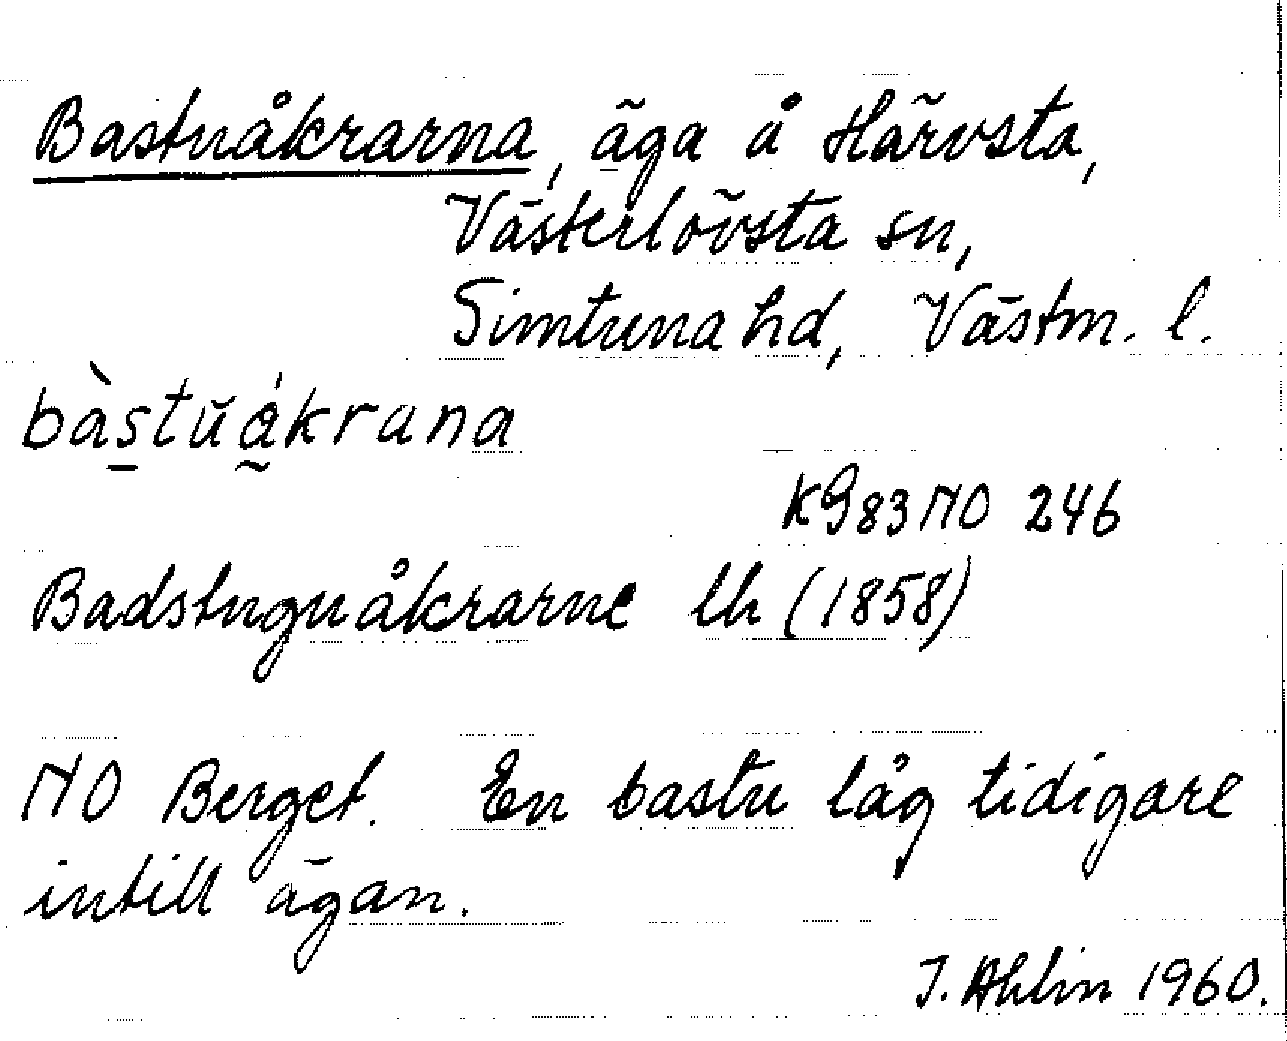 Bastuåkrarna, äga å Härvsta,
Västerlövsta sn,
Simtuna hd, Västm. l.
bàstŭåkrana
K983 NO 246
Badstuguåkrarne lh (1858)
NO Berget. En bastu låg tidigare
intill ägan.
I. Ahlin 1960.